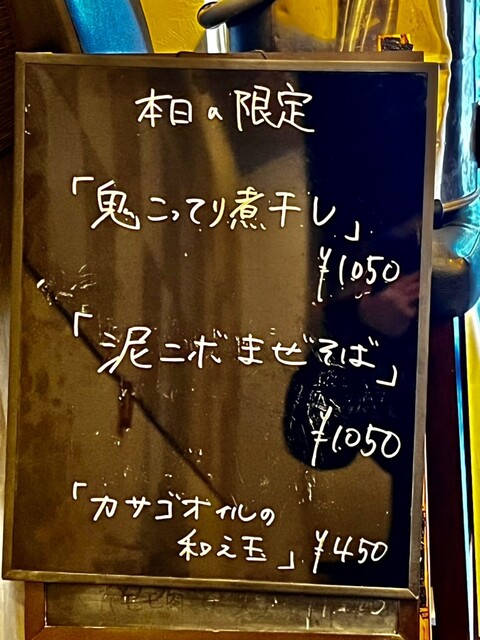 本日の限定
「鬼こってり煮干し」
¥1050
「泥ニボまぜそば」
¥1050
「カサゴオイルの
和え玉」 ¥450